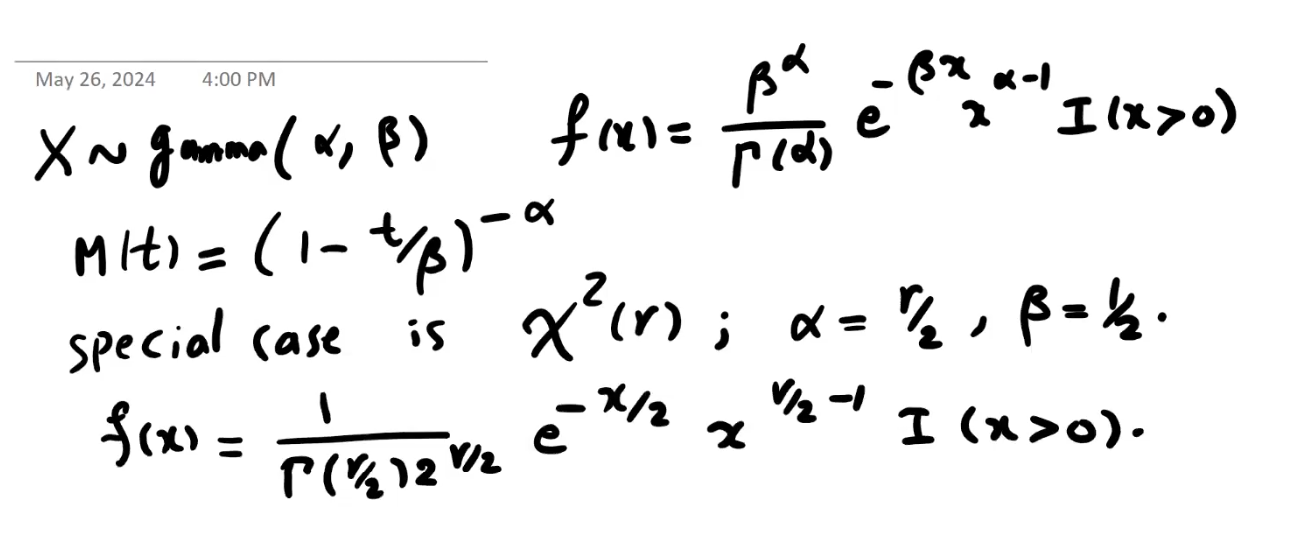 May 26, 2024 4:00 PM
X ~ gamma(α, β) f(x) = β^α / Γ(α) e^{-βx} x^{α-1} I(x>0)
M(t) = (1 - t/β)^{-α}
special case is χ²(r) ; α = r/2 , β = 1/2 .
f(x) = 1 / Γ(r/2) 2^{r/2} e^{-x/2} x^{r/2 -1} I (x>0).